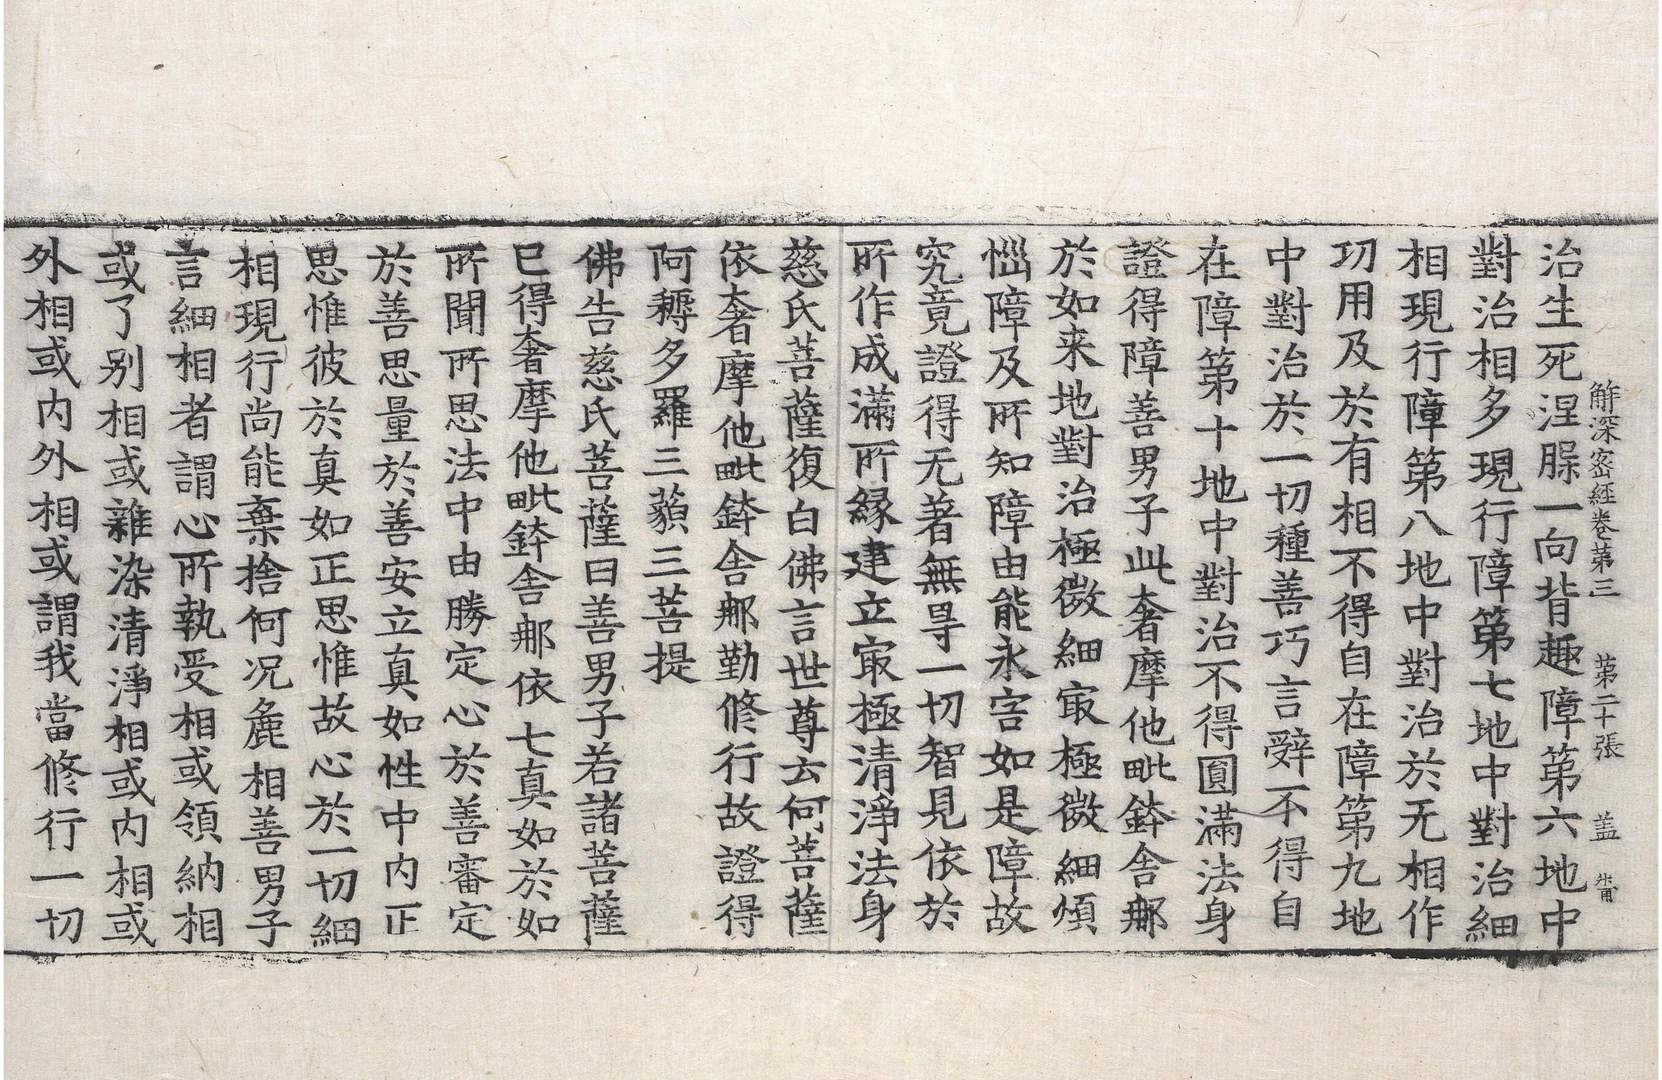 解深密經卷第三 第二十張 盖
治生死涅槃一向背趣障第六地中
對治相多現行障第七地中對治細
相現行障第八地中對治於无相作
功用及於有相不得自在障第九地
中對治於一切種善巧言辭不得自
在障第十地中對治不得圓滿法身
證得障善男子此奢摩他毗鉢舍那
於如来地對治極微細㝡極微細煩
惱障及所知障由能永害如是障故
究竟證得无著無㝵一切智見依於
所作成滿所縁建立㝡極清淨法身
慈氏菩薩復白佛言世尊云何菩薩
依奢摩他毗鉢舍那勤修行故證得
阿耨多羅三藐三菩提
佛告慈氏菩薩曰善男子若諸菩薩
已得奢摩他毗鉢舍那依七真如於如
所聞所思法中由勝定心於善審定
於善思量於善安立真如性中內正
思惟彼於真如正思惟故心於一切細
相現行尚能棄捨何况麁相善男子
言細相者謂心所執受相或領納相
或了别相或雜染清淨相或內相或
外相或內外相或謂我當修行一切